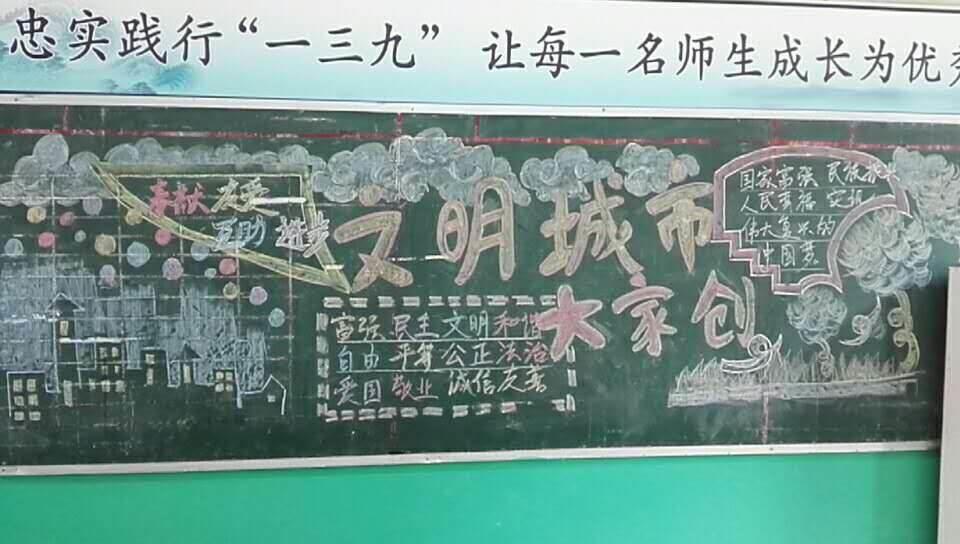 忠实践行“一三九” 让每一名师生成长为优
奉献 友爱
互助 进步
文明城市
大家创
富强 民主 文明 和谐
自由 平等 公正 法治
爱国 敬业 诚信 友善
国家富强 民族振兴
人民幸福 实现
伟大复兴的
中国梦